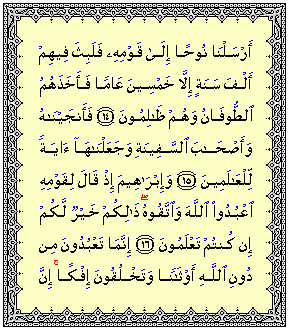 أَرۡسَلۡنَا نُوحًا إِلَىٰ قَوۡمِهِۦ فَلَبِثَ فِيهِمۡ
أَلۡفَ سَنَةٍ إِلَّا خَمۡسِينَ عَامًا فَأَخَذَهُمُ
ٱلطُّوفَانُ وَهُمۡ ظَٰلِمُونَ ١٤ فَأَنجَيۡنَٰهُ
وَأَصۡحَٰبَ ٱلسَّفِينَةِ وَجَعَلۡنَٰهَآ ءَايَةً
لِّلۡعَٰلَمِينَ ١٥ وَإِبۡرَٰهِيمَ إِذۡ قَالَ لِقَوۡمِهِ
ٱعۡبُدُواْ ٱللَّهَ وَٱتَّقُوهُۖ ذَٰلِكُمۡ خَيۡرٌ لَّكُمۡ
إِن كُنتُمۡ تَعۡلَمُونَ ١٦ إِنَّمَا تَعۡبُدُونَ مِن
دُونِ ٱللَّهِ أَوۡثَٰنًا وَتَخۡلُقُونَ إِفۡكًاۚ إِنَّ